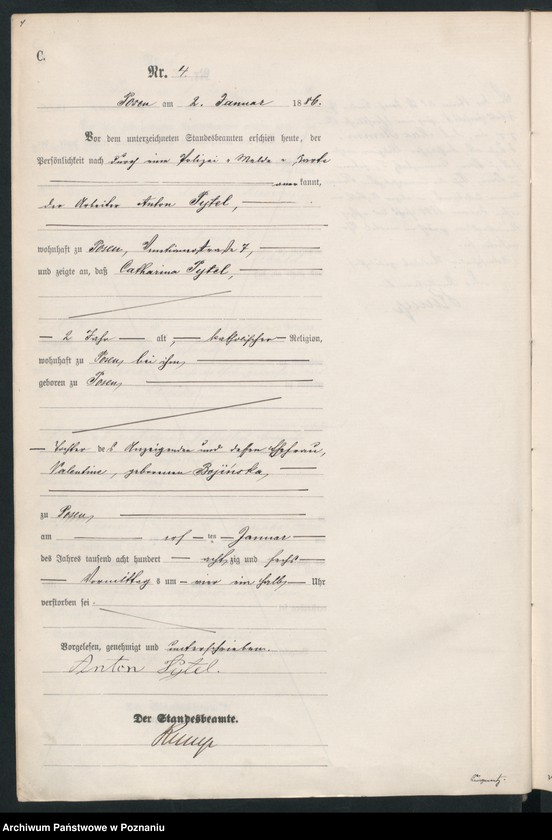 C.
Nr. 4.
Posen am 2. Januar 1886.
Vor dem unterzeichneten Standesbeamten erschien heute, der
Persönlichkeit nach durch eine Polizei-Melde-Karte
kannt,
der Arbeiter Anton Pytel,
wohnhaft zu Posen, Venetianerstraße 7,
und zeigte an, daß Catharina Pytel,
2 Jahr alt, katholischer Religion,
wohnhaft zu Posen, bei ihm,
geboren zu Posen,
Tochter des Anzeigenden und dessen Ehefrau,
Valentine, geborenen
zu Posen,
am ersten Januar
des Jahres tausend acht hundert achtzig und sechs
Vormittags um vier ein halb Uhr
verstorben sei.
Vorgelesen, genehmigt und unterschrieben.
Anton Pytel.
Der Standesbeamte.
Archiwum Państwowe w Poznaniu